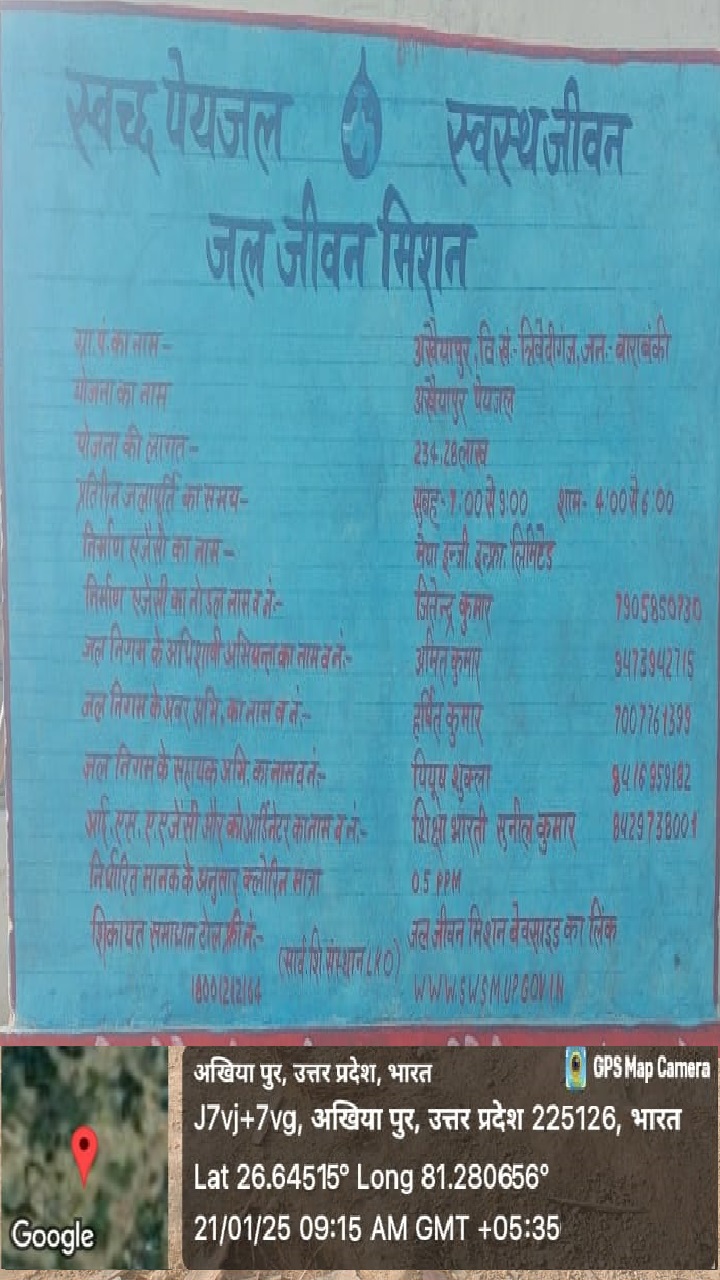 स्वच्छ पेयजल स्वस्थ जीवन
जल जीवन मिशन
ग्रा.पं.का नाम- अखैयापुर, वि.खं.- त्रिवेदीगंज, जन.- बाराबंकी
योजना का नाम अखैयापुर पेयजल
योजना की लागत- 234.28 लाख
प्रतिदिन जलापूर्ति का समय- सुबह- 7:00 से 9:00 शाम- 4:00 से 6:00
निर्माण एजेंसी का नाम- मेघा इन्जी. इन्फ्रा. लिमिटेड
निर्माण एजेंसी का नोडल नाम व नं:- जितेन्द्र कुमार 7905850730
जल निगम के अधिशाषी अभियन्ता का नाम व नं:- अमित कुमार 9473942715
जल निगम के अवर अभि. का नाम व नं:- हर्षित कुमार 7007761399
जल निगम के सहायक अभि. का नाम व नं:- पियूष शुक्ला 8416959182
आई.एस.ए एजेंसी और कोआर्डिनेटर का नाम व नं:- शिक्षा भारती सुनील कुमार 8429738001
निर्धारित मानक के अनुसार क्लोरिन मात्रा 0.5 PPM
शिकायत समाधान टोल फ्री नं:- जल जीवन मिशन बेवसाइड का लिंक
18001212164 WWW.SWSMUP.GOV.IN
GPS Map Camera
अखिया पुर, उत्तर प्रदेश, भारत
J7vj+7vg, अखिया पुर, उत्तर प्रदेश 225126, भारत
Lat 26.64515° Long 81.280656°
21/01/25 09:15 AM GMT +05:35
Google